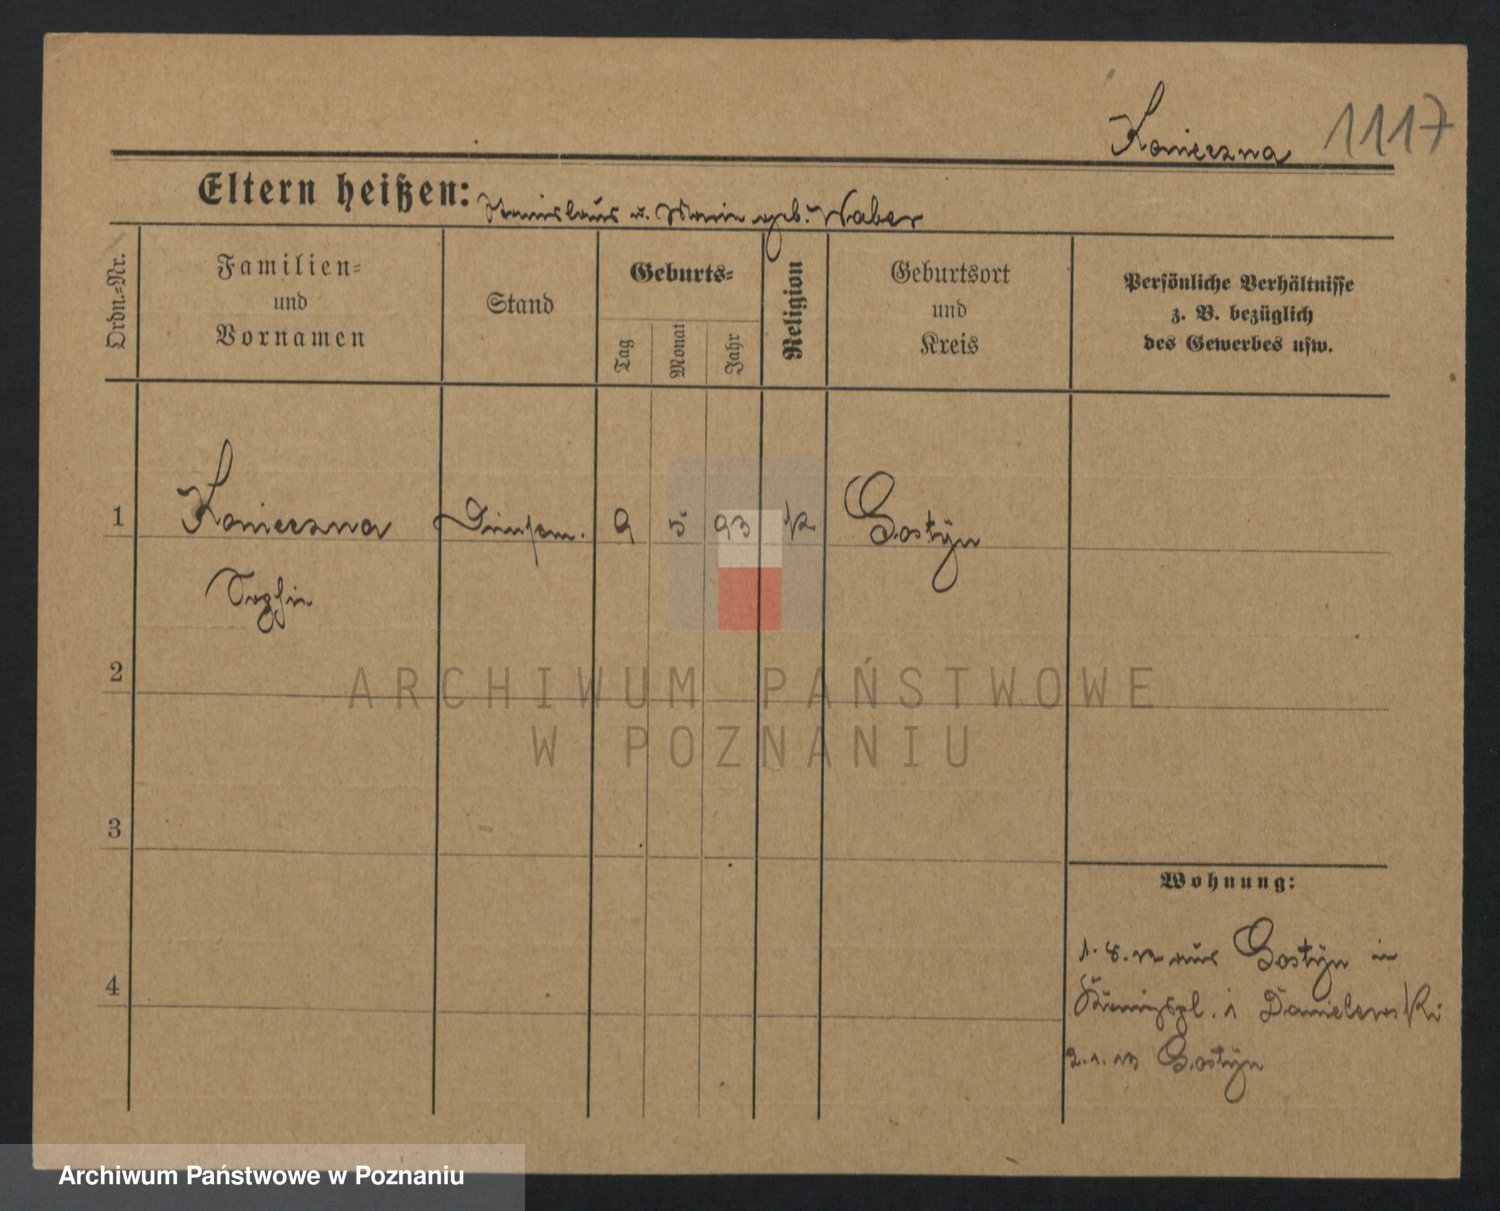 Konieczna 1117
Eltern heißen: Stanislaus u. Marie geb. Waber
Ordn.-Nr.
Familien-
und
Vornamen
Stand
Geburts-
Tag
Monat
Jahr
Religion
Geburtsort
und
Kreis
Persönliche Verhältnisse
z. B. bezüglich
des Gewerbes usw.
1 Konieczna Dienstm. 9 5. 93 k Gostÿn
Sophie
2
ARCHIWUM PAŃSTWOWE
W POZNANIU
3
Wohnung:
1. 8. 12 aus Gostÿn in
4
Königspl. 1 Danielewski
2. 1. 13 Gostÿn
Archiwum Państwowe w Poznaniu